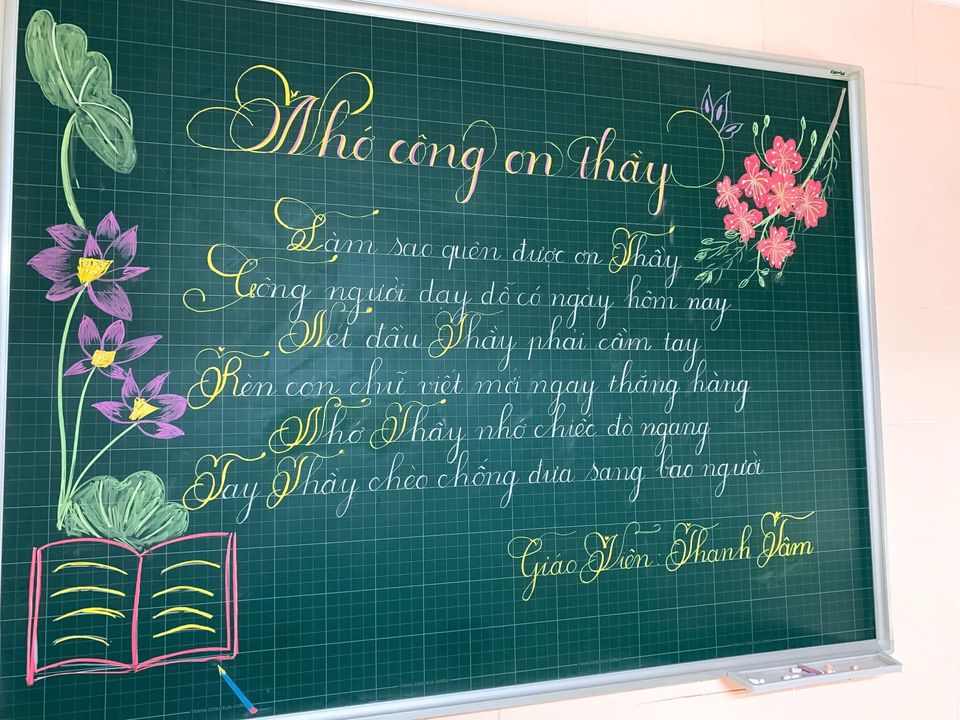 Nhớ công ơn thầy
Làm sao quên được ơn Thầy
Công người dạy dỗ có ngày hôm nay
Nét đầu Thầy phải cầm tay
Rèn con chữ viết mới ngay thẳng hàng
Nhớ Thầy nhớ chiếc đò ngang
Tay Thầy chèo chống đưa sang bao người
Giáo Viên: Thanh Tâm